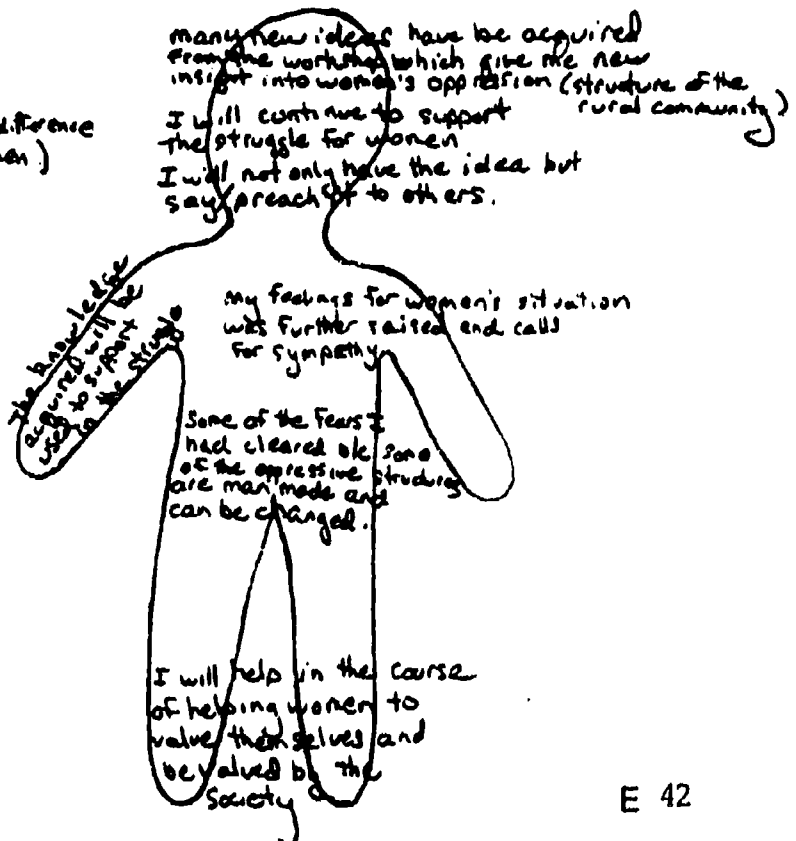 many new ideas have be acquired
from the workshop which give me new
insight into women's oppression (structure of the
rural community)
I will continue to support
the struggle for women
I will not only have the idea but
say/preach it to others.
difference
men)
The knowledge
acquired will be
used to support
in the struggle
My feelings for women's situation
was further raised and calls
for sympathy
Some of the Fears I
had cleared b/c some
of the oppressive structures
are man made and
can be changed.
I will help in the course
of helping women to
value themselves and
be valued by the
Society
E 42